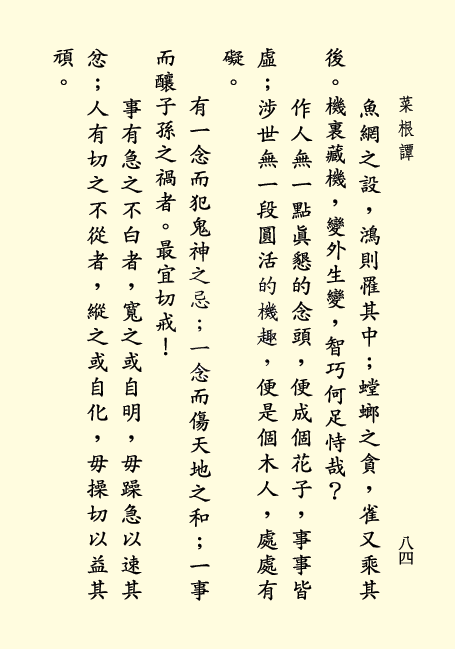 菜根譚
魚網之設，鴻則罹其中；螳螂之貪，雀又乘其
後。機裏藏機，變外生變，智巧何足恃哉？
作人無一點真懇的念頭，便成個花子，事事皆
虛；涉世無一段圓活的機趣，便是個木人，處處有
礙。
有一念而犯鬼神之忌；一念而傷天地之和；一事
而釀子孫之禍者。最宜切戒！
事有急之不白者，寬之或自明，毋躁急以速其
忿；人有切之不從者，縱之或自化，毋操切以益其
頑。
八四